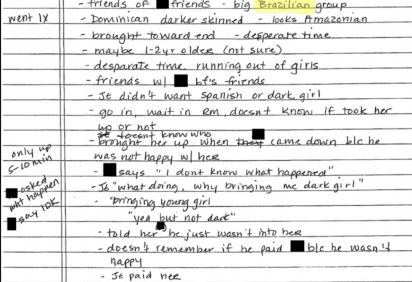 - friends of friends - big Brazilian group
went 1x - Dominican darker skinned - looks Amazonian
- brought toward end - desperate time
- maybe 1-2yr older (not sure)
- desparate time. running out of girls
- friends w/ bf's friends
- JE didn't want Spanish or dark girl
- go in, wait in rm, doesn't know if took her
up or not
doesnt know who
- brought her up when they came down b/c he
was not happy w/ her
only up
5-10 min
- says "I dont know what happened"
asked
wht happen
- JE "what doing, why bringing me dark girl"
say 10K
- "bringing young girl
"yea but not dark"
- told her he just wasn't into her
- doesn't remember if he paid b/c he wasn't
happy
- JE paid her